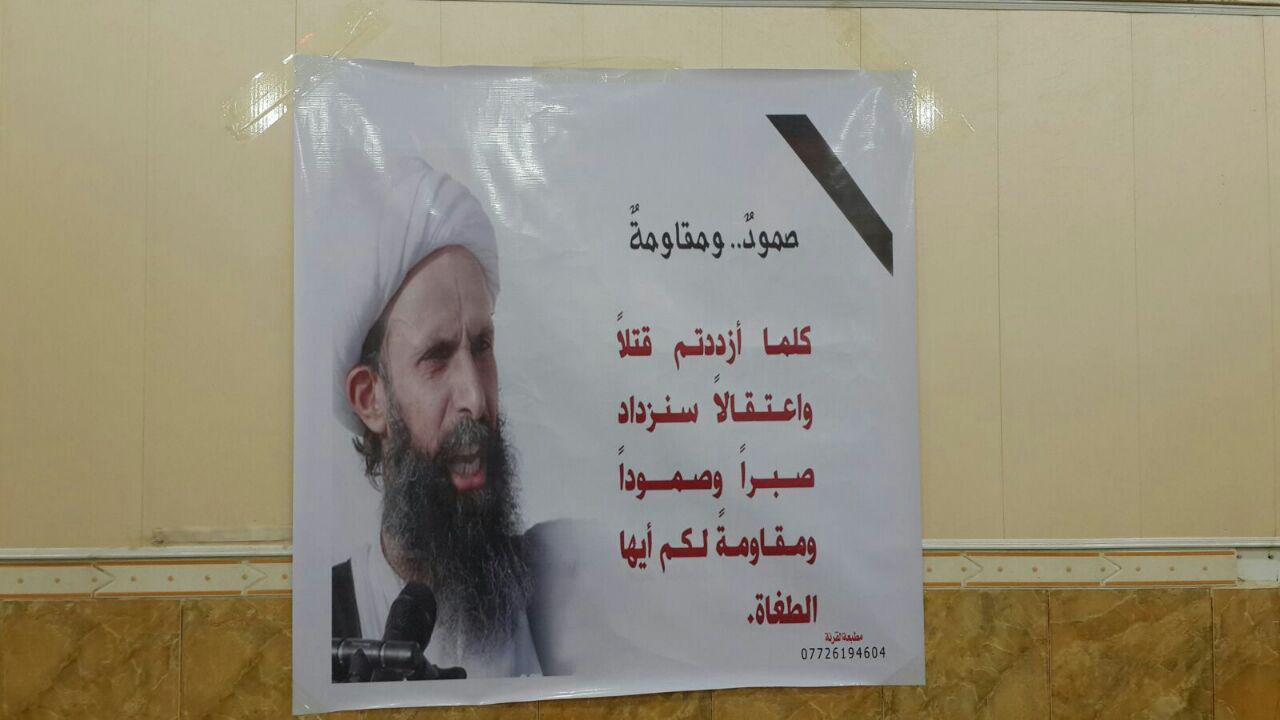 صمودٌ.. ومقاومةٌ
كلما أزددتم قتلاً
واعتقالاً سنزداد
صبراً وصموداً
ومقاومةً لكم أيها
الطغاة.
مطبعة القرنة
07726194604